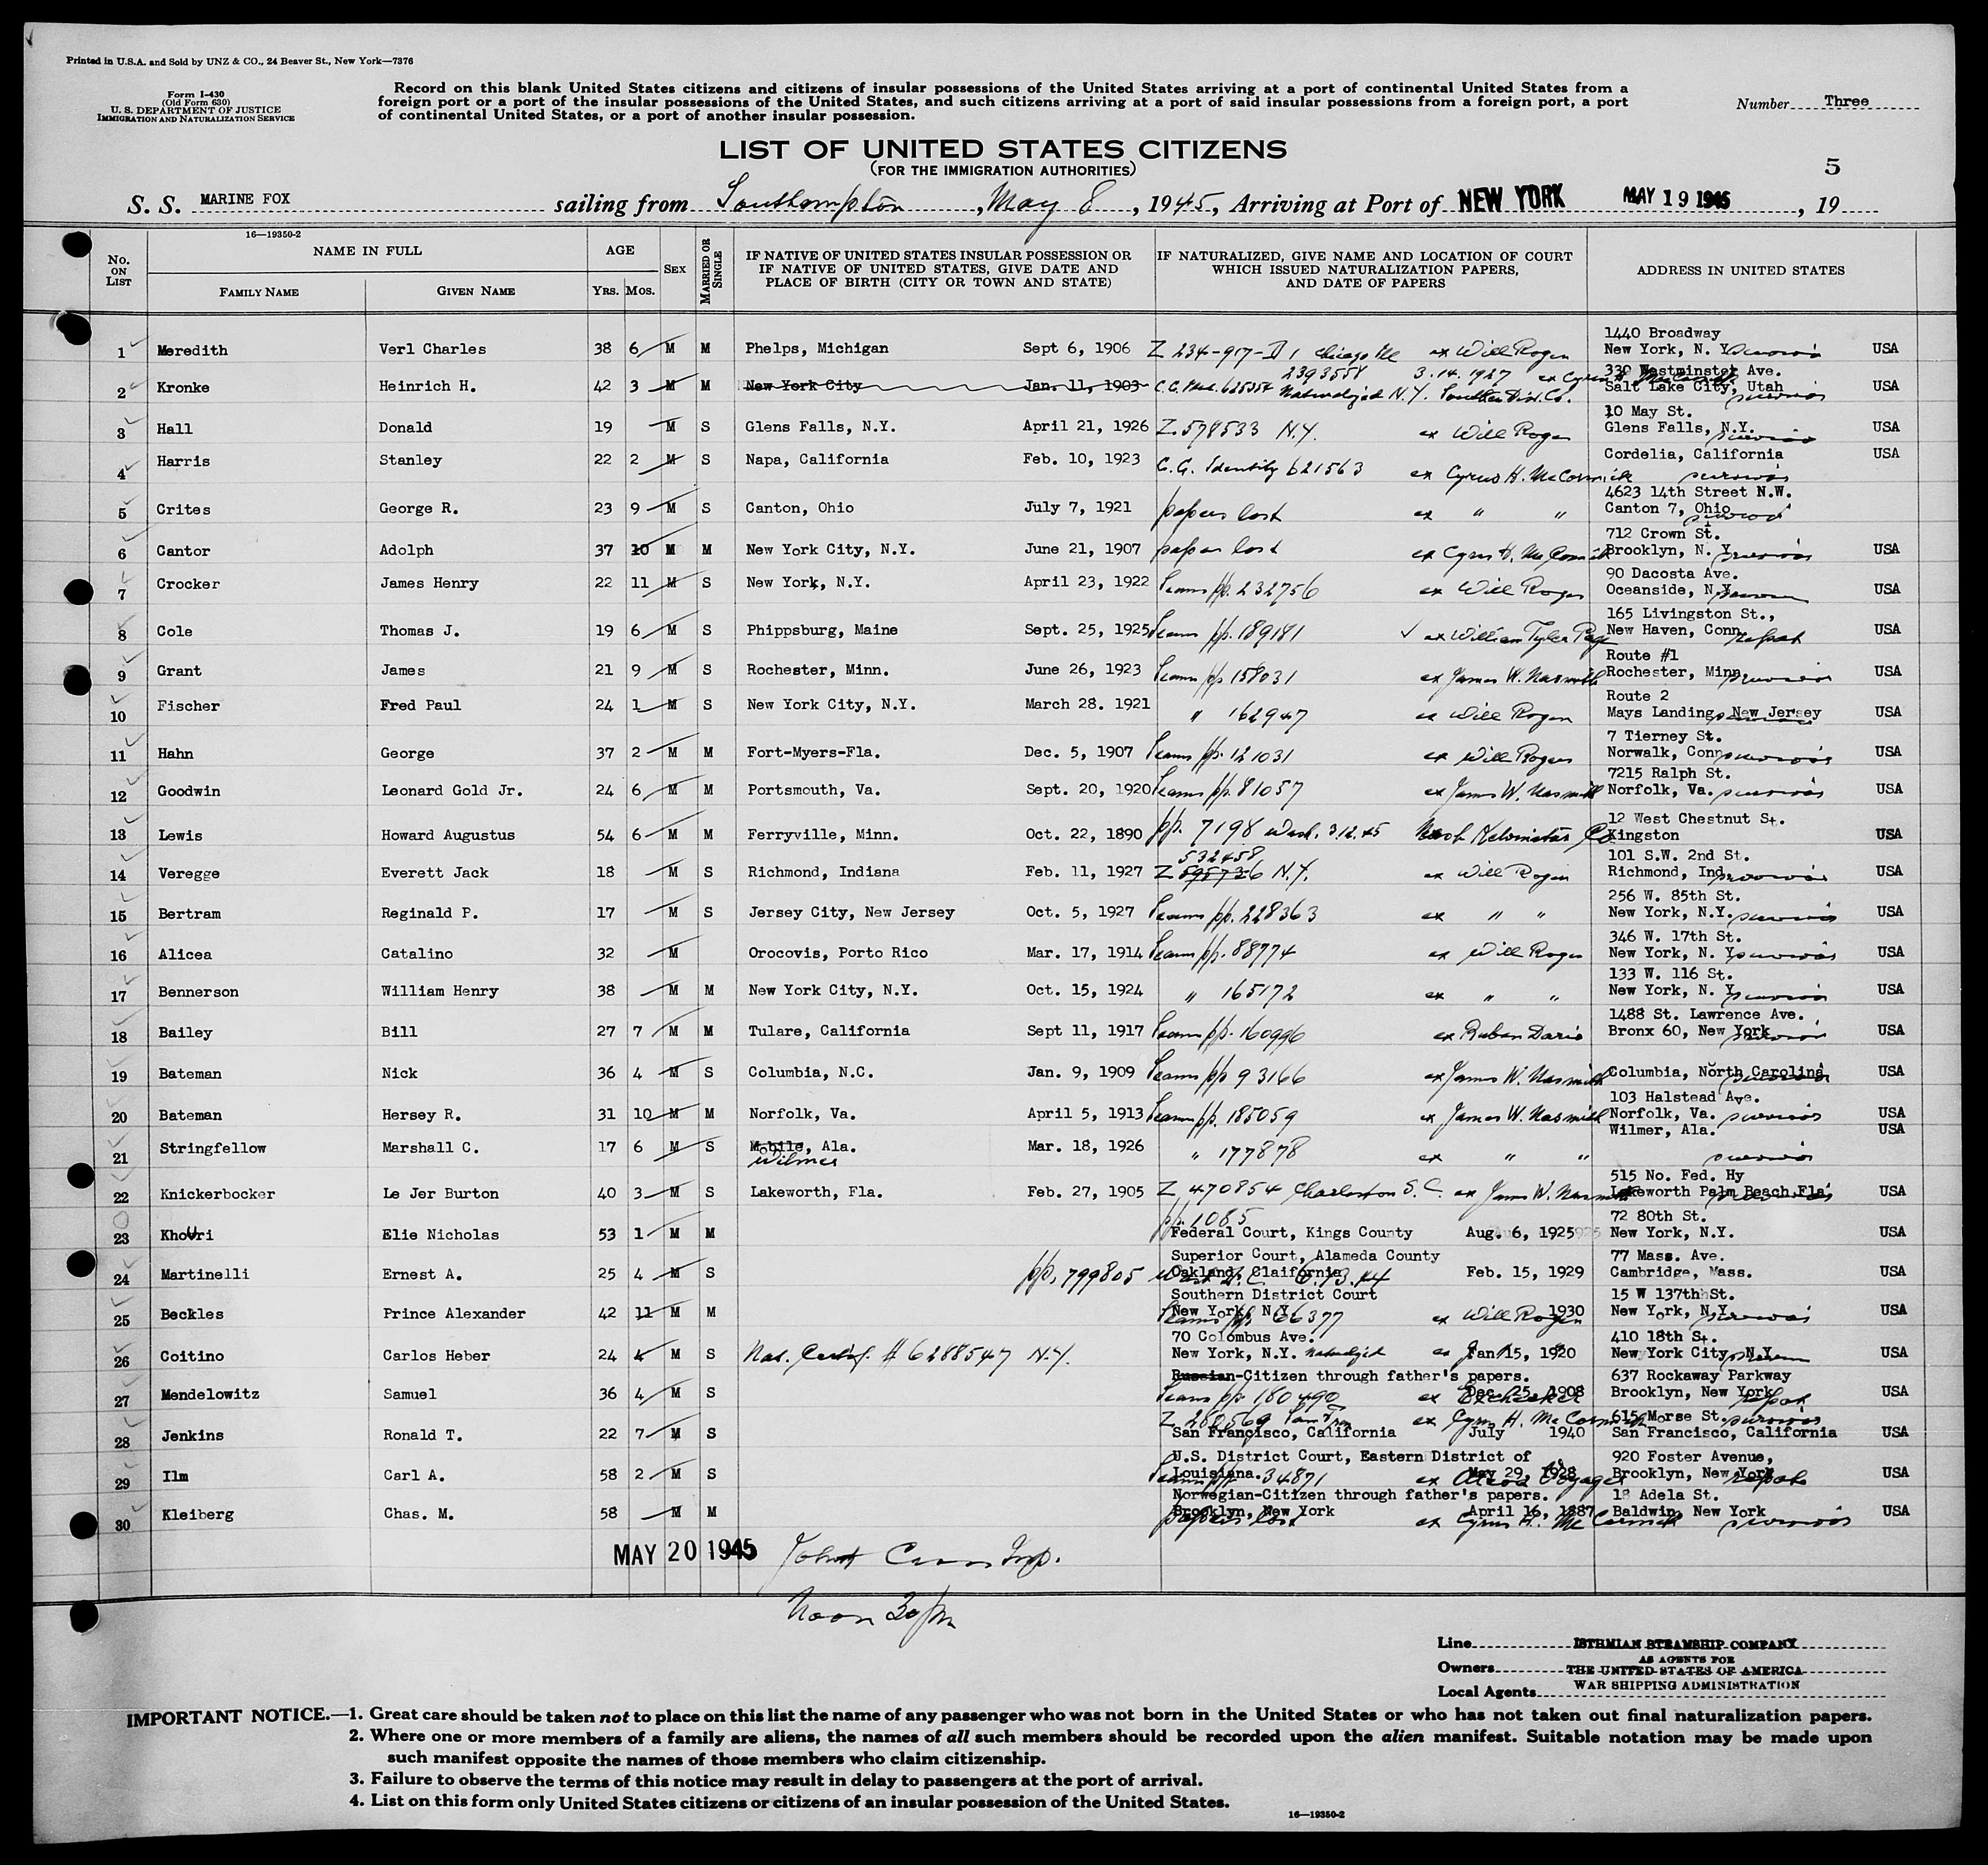 Printed in U.S.A. and Sold by UNZ & CO., 24 Beaver St., New York—7376
Form I-430
(Old Form 630)
U. S. DEPARTMENT OF JUSTICE
IMMIGRATION AND NATURALIZATION SERVICE
Record on this blank United States citizens and citizens of insular possessions of the United States arriving at a port of continental United States from a
foreign port or a port of the insular possessions of the United States, and such citizens arriving at a port of said insular possessions from a foreign port, a port
of continental United States, or a port of another insular possession.
Number Three
LIST OF UNITED STATES CITIZENS
(FOR THE IMMIGRATION AUTHORITIES)
5
S. S. MARINE FOX sailing from Southampton, May 8, 1945, Arriving at Port of NEW YORK MAY 19 1945, 19
16—19350-2
No. ON LIST NAME IN FULL AGE SEX MARRIED OR SINGLE IF NATIVE OF UNITED STATES INSULAR POSSESSION OR IF NATIVE OF UNITED STATES, GIVE DATE AND PLACE OF BIRTH (CITY OR TOWN AND STATE) IF NATURALIZED, GIVE NAME AND LOCATION OF COURT WHICH ISSUED NATURALIZATION PAPERS, AND DATE OF PAPERS ADDRESS IN UNITED STATES
FAMILY NAME GIVEN NAME YRS. MOS.
1440 Broadway
1 Meredith Verl Charles 38 6 M M Phelps, Michigan Sept 6, 1906 Z 234-917-D1 Chicago Ill ex Will Roger New York, N. Y. USA
2393558 3.14.1927 ex Cyrus H. McCormick 330 Westminster Ave.
2 Kronke Heinrich H. 42 3 M M New York City Jan. 11, 1903 C.G. 625354 Naturalized N.Y. Southern Dist. Co. Salt Lake City, Utah USA
10 May St.
3 Hall Donald 19 M S Glens Falls, N.Y. April 21, 1926 Z 578533 N.Y. ex Will Roger Glens Falls, N.Y. USA
4 Harris Stanley 22 2 M S Napa, California Feb. 10, 1923 C.G. Identity 621563 ex Cyrus H. McCormick Cordelia, California USA
4623 14th Street N.W.
5 Crites George R. 23 9 M S Canton, Ohio July 7, 1921 papers lost ex " " Canton 7, Ohio
712 Crown St.
6 Cantor Adolph 37 10 M M New York City, N.Y. June 21, 1907 papers lost ex Cyrus H. McCormick Brooklyn, N. Y. USA
90 Dacosta Ave.
7 Crocker James Henry 22 11 M S New York, N.Y. April 23, 1922 Seams pp. 232756 ex Will Roger Oceanside, N.Y. USA
165 Livingston St.,
8 Cole Thomas J. 19 6 M S Phippsburg, Maine Sept. 25, 1925 Seams pp. 189181 ex William Tyler Page New Haven, Conn. repat USA
Route #1
9 Grant James 21 9 M S Rochester, Minn. June 26, 1923 Seams pp 158031 ex James W. Nasmith Rochester, Minn. USA
Route 2
10 Fischer Fred Paul 24 1 M S New York City, N.Y. March 28. 1921 " 162947 ex Will Roger Mays Landing, New Jersey USA
7 Tierney St.
11 Hahn George 37 2 M M Fort-Myers-Fla. Dec. 5, 1907 Seams pp. 121031 ex Will Rogers Norwalk, Conn. USA
7215 Ralph St.
12 Goodwin Leonard Gold Jr. 24 6 M M Portsmouth, Va. Sept. 20, 1920 Seams pp. 81057 ex James W. Nasmith Norfolk, Va. USA
12 West Chestnut St.
13 Lewis Howard Augustus 54 6 M M Ferryville, Minn. Oct. 22, 1890 pp. 7198 Wash. 3.12.45 Nash Kelvinator Co Kingston USA
532458 101 S.W. 2nd St.
14 Veregge Everett Jack 18 M S Richmond, Indiana Feb. 11, 1927 Z 595736 N.Y. ex Will Roger Richmond, Ind. USA
256 W. 85th St.
15 Bertram Reginald P. 17 M S Jersey City, New Jersey Oct. 5, 1927 Seams pp. 228363 ex " " New York, N.Y. USA
346 W. 17th St.
16 Alicea Catalino 32 M Orocovis, Porto Rico Mar. 17, 1914 Seams pp. 88774 ex Will Roger New York, N. Y. USA
133 W. 116 St.
17 Bennerson William Henry 38 M M New York City, N.Y. Oct. 15, 1924 " 165172 ex " " New York, N. Y. USA
1488 St. Lawrence Ave.
18 Bailey Bill 27 7 M M Tulare, California Sept 11, 1917 Seams pp. 160996 ex Ruben Dario Bronx 60, New York USA
19 Bateman Nick 36 4 M S Columbia, N.C. Jan. 9, 1909 Seams pp 93166 ex James W. Nasmith Columbia, North Carolina USA
103 Halstead Ave.
20 Bateman Hersey R. 31 10 M M Norfolk, Va. April 5, 1913 Seams pp. 185059 ex James W. Nasmith Norfolk, Va. USA
Wilmer, Ala. USA
21 Stringfellow Marshall C. 17 6 M S Mobile, Ala. Mar. 18, 1926 " 177878 ex " "
Wilmer
515 No. Fed. Hy
22 Knickerbocker Le Jer Burton 40 3 M S Lakeworth, Fla. Feb. 27, 1905 Z 470854 Charleston S.C. ex James W. Nasmith Lakeworth Palm Beach Fla. USA
pp. 1085 72 80th St.
23 Khouri Elie Nicholas 53 1 M M Federal Court, Kings County Aug. 6, 1925 New York, N.Y. USA
Superior Court, Alameda County 77 Mass. Ave.
24 Martinelli Ernest A. 25 4 M S pp. 799805 Oakland, Claifornia Feb. 15, 1929 Cambridge, Mass. USA
Southern District Court 15 W 137th St.
25 Beckles Prince Alexander 42 11 M M New York, N.Y. 1930 Seams pp. 66377 ex Will Roger New York, N.Y. USA
70 Colombus Ave. 410 18th St.
26 Coitino Carlos Heber 24 4 M S Nat. Certif. # 6288547 N.Y. New York, N.Y. Naturalized Jan 15, 1920 New York City, N.Y. USA
Russian-Citizen through father's papers. 637 Rockaway Parkway
27 Mendelowitz Samuel 36 4 M S Seams pp 180490 Dec. 25, 1908 ex Brooklyn, New York repat USA
Z 280569 San Fran ex Cyrus H. McCormick 615 Morse St.
28 Jenkins Ronald T. 22 7 M S San Francisco, California July 1940 San Francisco, California USA
U.S. District Court, Eastern District of 920 Foster Avenue,
29 Ilm Carl A. 58 2 M S Louisiana. May 29, 1928 Seams pp. 34871 ex Alcoa Voyager Brooklyn, New York repat USA
Norwegian-Citizen through father's papers. 18 Adela St.
30 Kleiberg Chas. M. 58 M M Brooklyn, New York April 16, 1887 papers lost ex Cyrus H. McCormick Baldwin, New York USA
MAY 20 1945
Line ISTHMIAN STEAMSHIP COMPANY
AS AGENTS FOR
Owners THE UNITED STATES OF AMERICA
Local Agents WAR SHIPPING ADMINISTRATION
IMPORTANT NOTICE.—1. Great care should be taken not to place on this list the name of any passenger who was not born in the United States or who has not taken out final naturalization papers.
2. Where one or more members of a family are aliens, the names of all such members should be recorded upon the alien manifest. Suitable notation may be made upon
such manifest opposite the names of those members who claim citizenship.
3. Failure to observe the terms of this notice may result in delay to passengers at the port of arrival.
4. List on this form only United States citizens or citizens of an insular possession of the United States.
16—19350-2